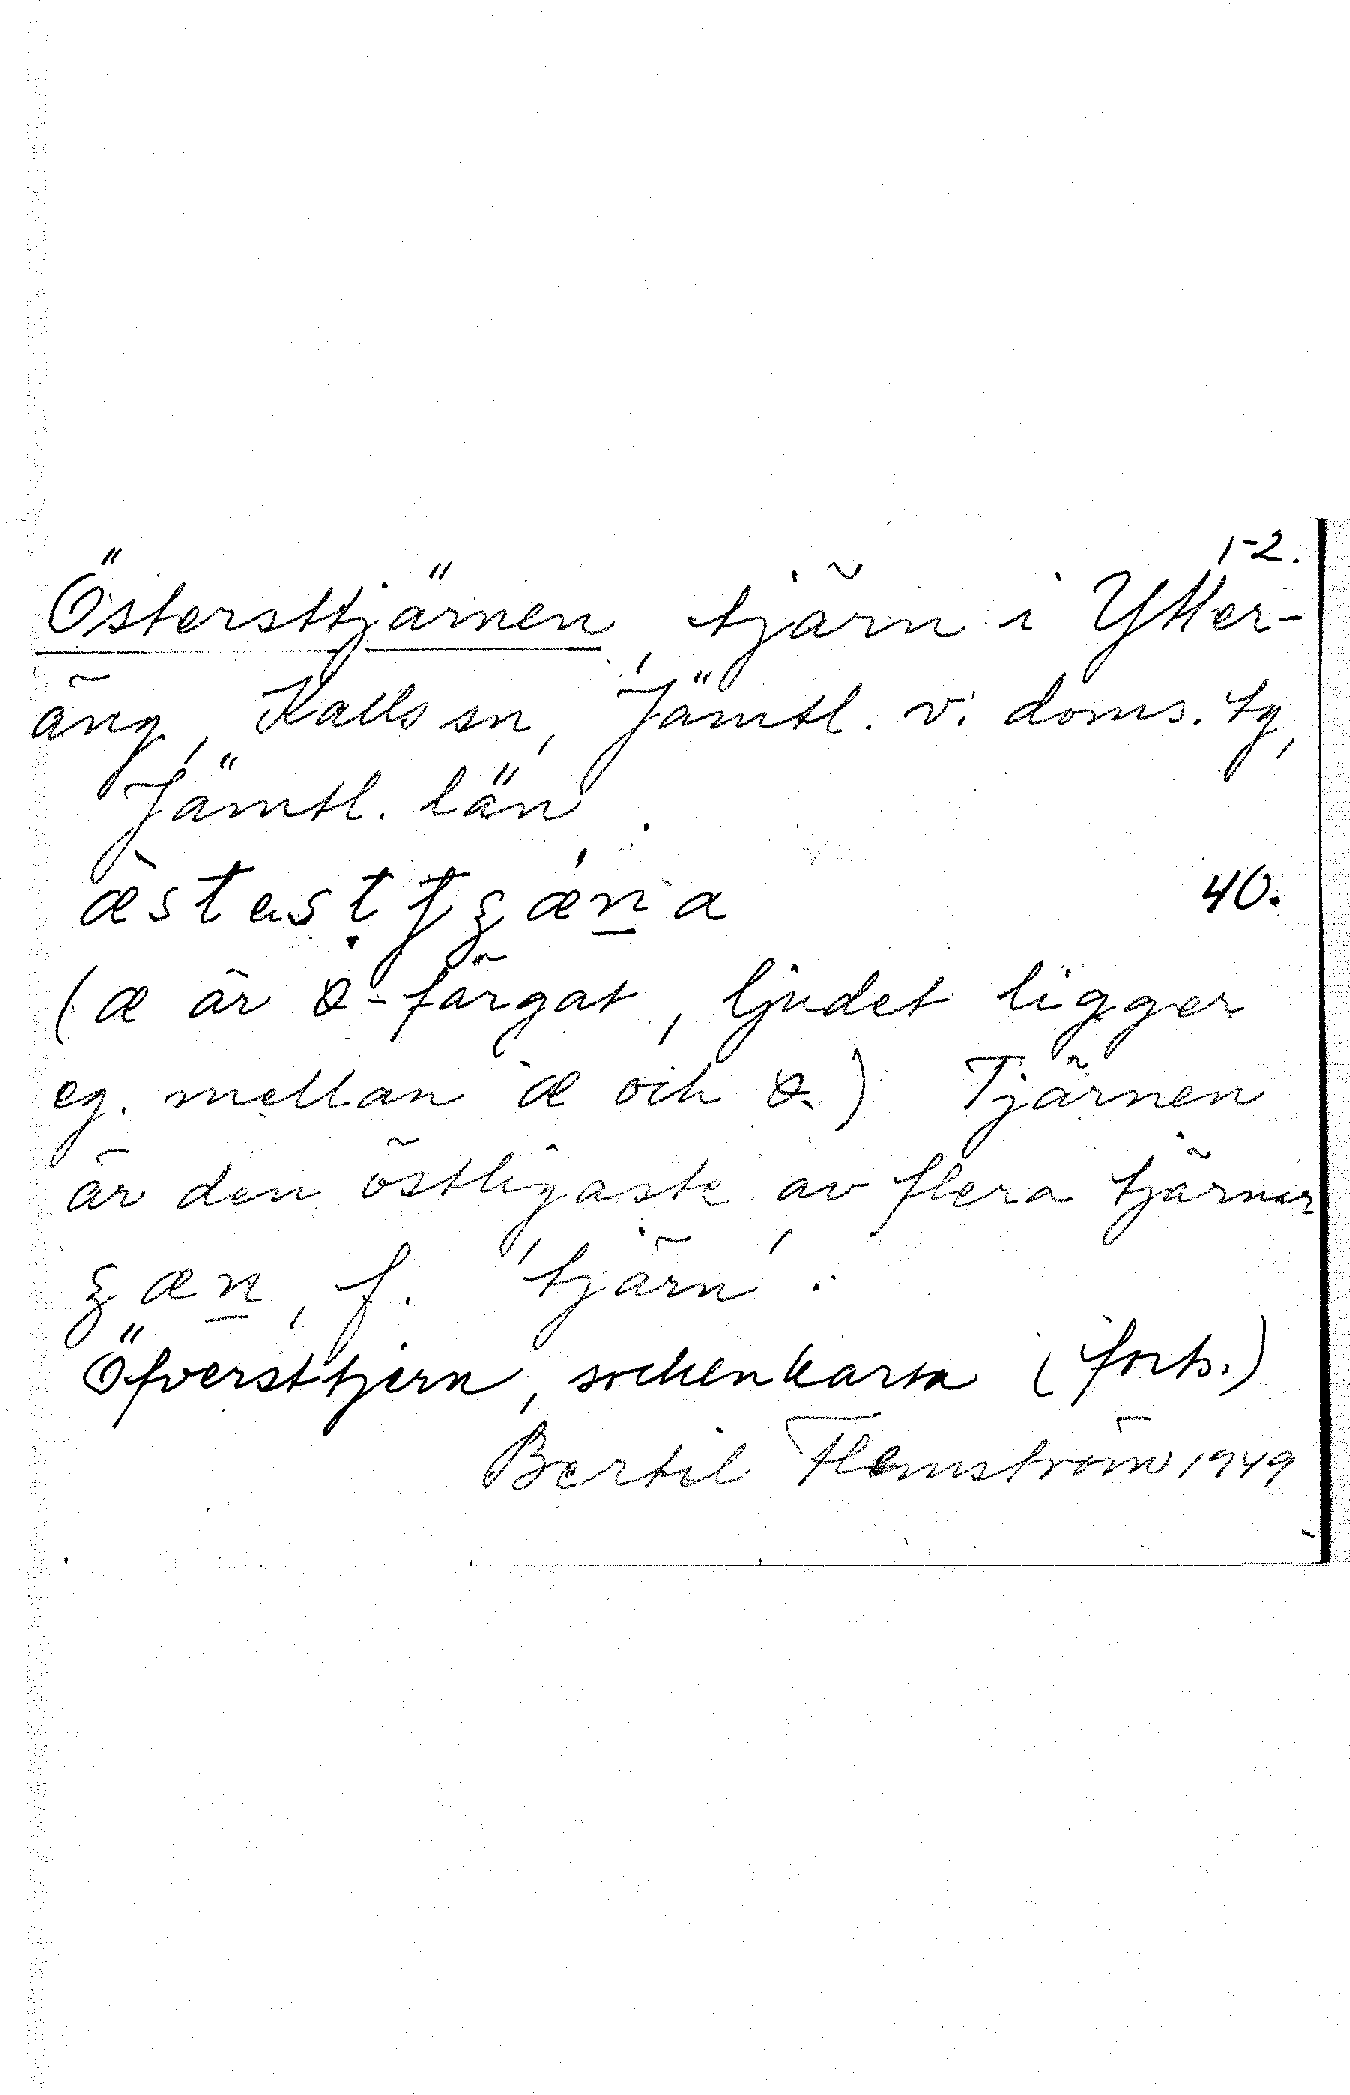 1-2.
Östersttjärnen, tjärn i Ytter-
äng, Kalls sn, Jämtl. v. doms. tg,
Jämtl. län.
40.
(æ är -färgat, ljudet ligger
eg. mellan æ och ) Tjärnen
är den östligaste av flera tjärnar
f. 'tjärn'.
Öfversttjern, sockenkarta (forts.)
Bertil Flemström 1949